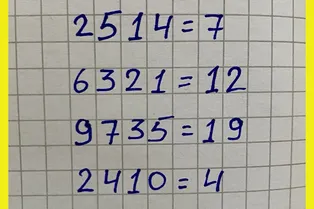 2514=7
6321=12
9735=19
2410=4